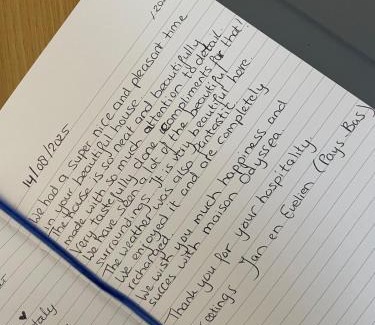 /202
14/08/2025
We had a super nice and pleasant time
in your beautiful house
The house is so neat and beautifully
made with so much attention to detail.
Very tastefully done compliments for that!
We have seen a lot of the beautiful
surroundings. It is very beautiful here
The weather was also fantastic.
We enjoyed it and are completely
recharged.
We wish you much happiness and
succes with maison Odyssea
Thank you for your hospitality.
eetings Jan en Evelien (Pays-Bas)
taly